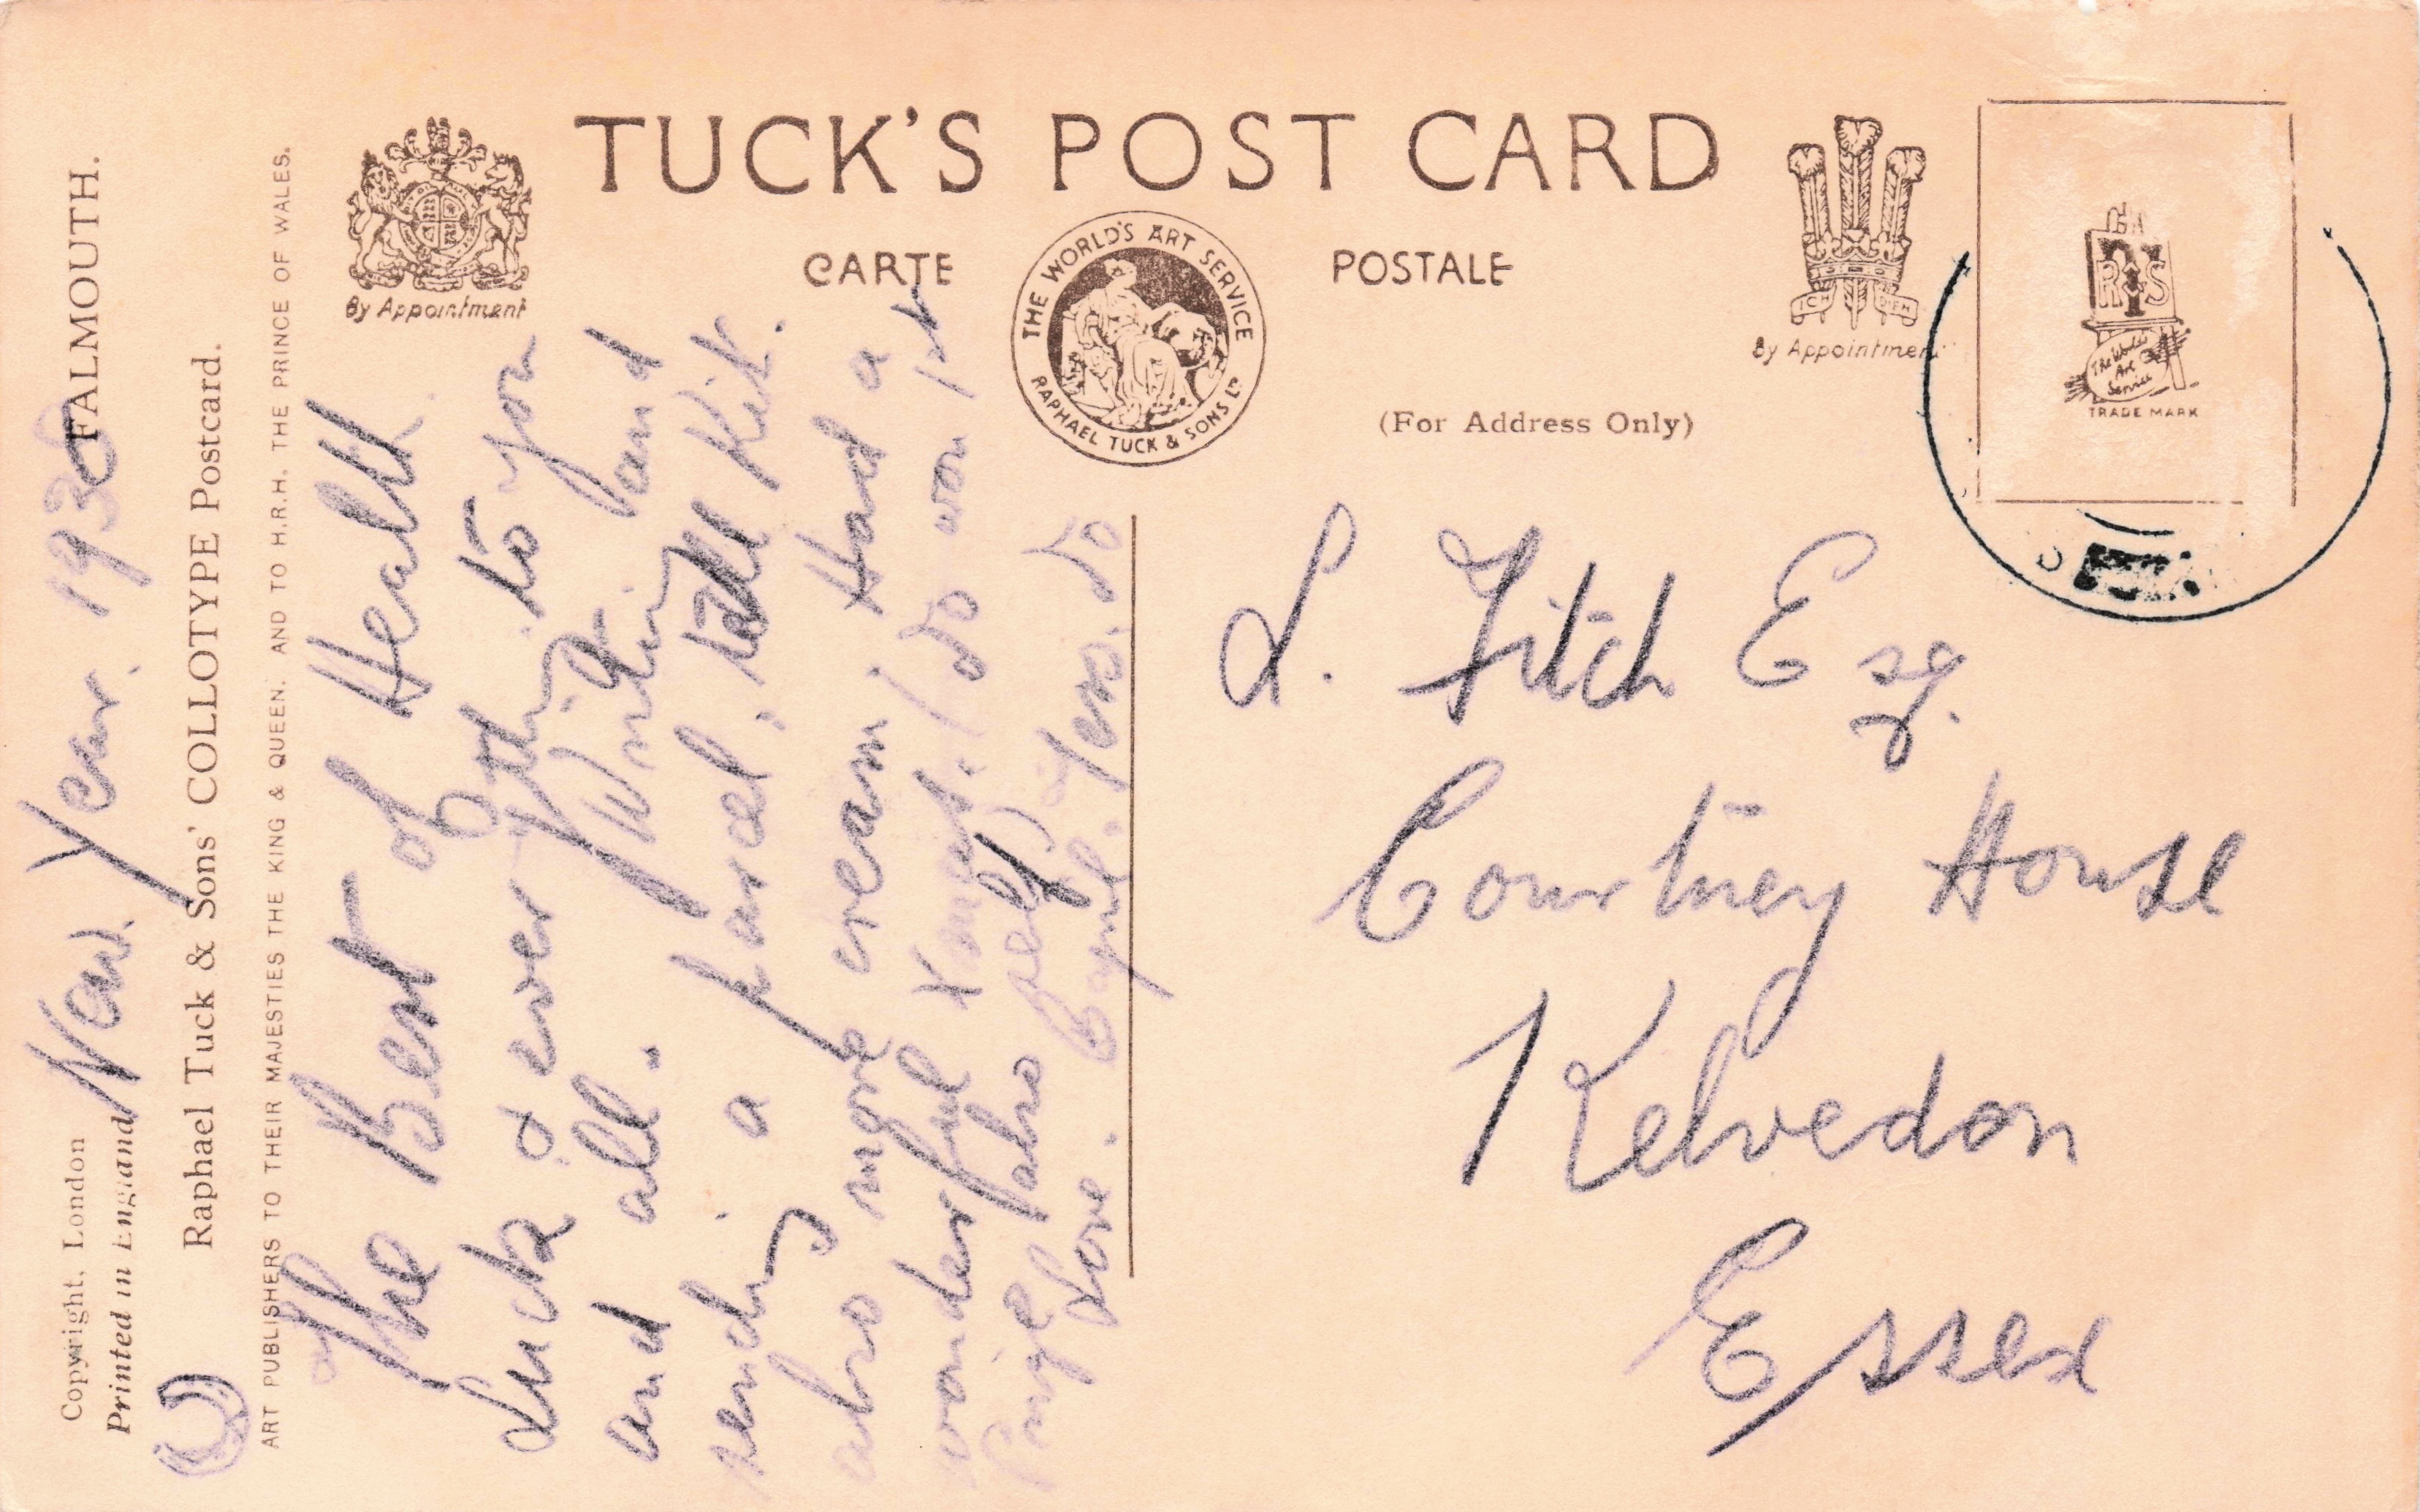 TUCK'S POST CARD
CARTE POSTALE
By Appointment
THE WORLD'S ART SERVICE
RAPHAEL TUCK & SONS LD
ICH DIEN
By Appointment
(For Address Only)
RTS
The World's
Art
Service
TRADE MARK
FALMOUTH.
Copyright, London
Printed in England
Raphael Tuck & Sons' COLLOTYPE Postcard.
ART PUBLISHERS TO THEIR MAJESTIES THE KING & QUEEN. AND TO H.R.H. THE PRINCE OF WALES.
New Year. 1930
The Best of Health
Luck & ever to you
and all. Writing and
sending a parcel. Kit.
also more cream. Had a
wonderful Xmast. (So won 1st
Prize also
Love.
L. Fitch Esq.
Courtney House
Kelvedon
Essex